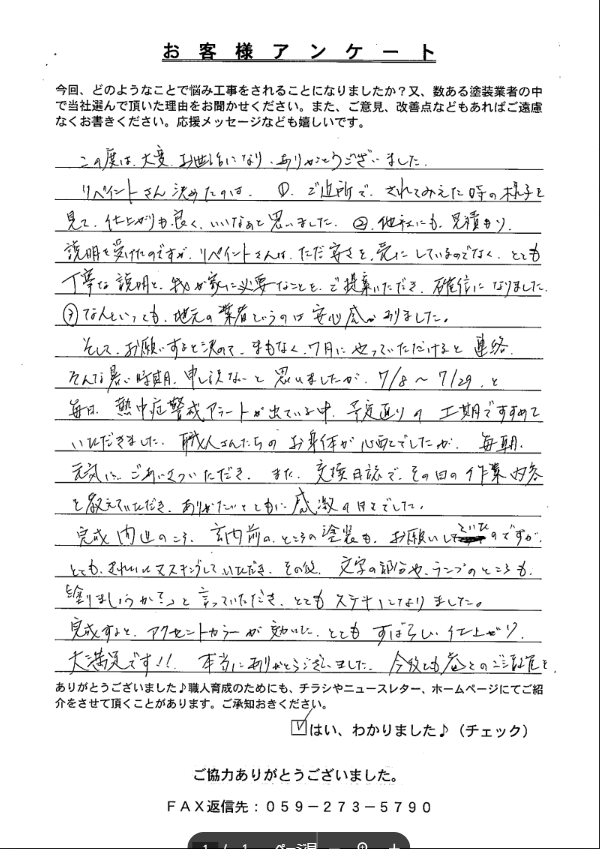 お客様アンケート
今回、どのようなことで悩み工事をされることになりましたか？又、数ある塗装業者の中
で当社選んで頂いた理由をお聞かせください。また、ご意見、改善点などもあればご遠慮
なくお書きください。応援メッセージなども嬉しいです。
この度は、大変、お世話になり、ありがとうございました。
リペイントさん決めたのは、①、ご近所で、されてみえた時の様子を
見て、仕上がりも良く、いいなあと思いました。②、他社にも、見積もり、
説明を受けたのですが、リペイントさんは、ただ安さを、売りにしているのでなく、とても
丁寧な説明と、我が家に必要なことを、ご提案いただき、確信になりました。
③なんといっても、地元の業者というのは安心感がありました。
そして、お願いすると決めて、まもなく、7月にやっていただけると連絡、
そんな暑い時期、申し訳ないと思いましたが、7/8～7/29、と
毎日、熱中症警戒アラートが出ている中、予定通りの工期ですすめて
いただきました。職人さんたちのお身体が心配でしたが、毎朝、
元気に、ごあいさついただき、また、交換日誌で、その日の作業内容
を教えていただき、ありがたいとともに感激の日々でした。
完成間近のころ、玄関前のところの塗装も、お願いしていたのですが、
とても、きれいにマスキングしていただき、その後、文字の部分や、ランプのところも、
「塗りましょうか？」と言っていただき、とてもステキになりました。
完成すると、アクセントカラーが効いた、とてもすばらしい仕上がり、
大満足です!! 本当にありがとうございました。今後とも
ありがとうございました♪職人育成のためにも、チラシやニュースレター、ホームページにてご紹
介をさせて頂くことがあります。ご承知おきください。
☑はい、わかりました♪（チェック）
ご協力ありがとうございました。
ＦＡＸ返信先：０５９－２７３－５７９０
1 / 1 ページ目